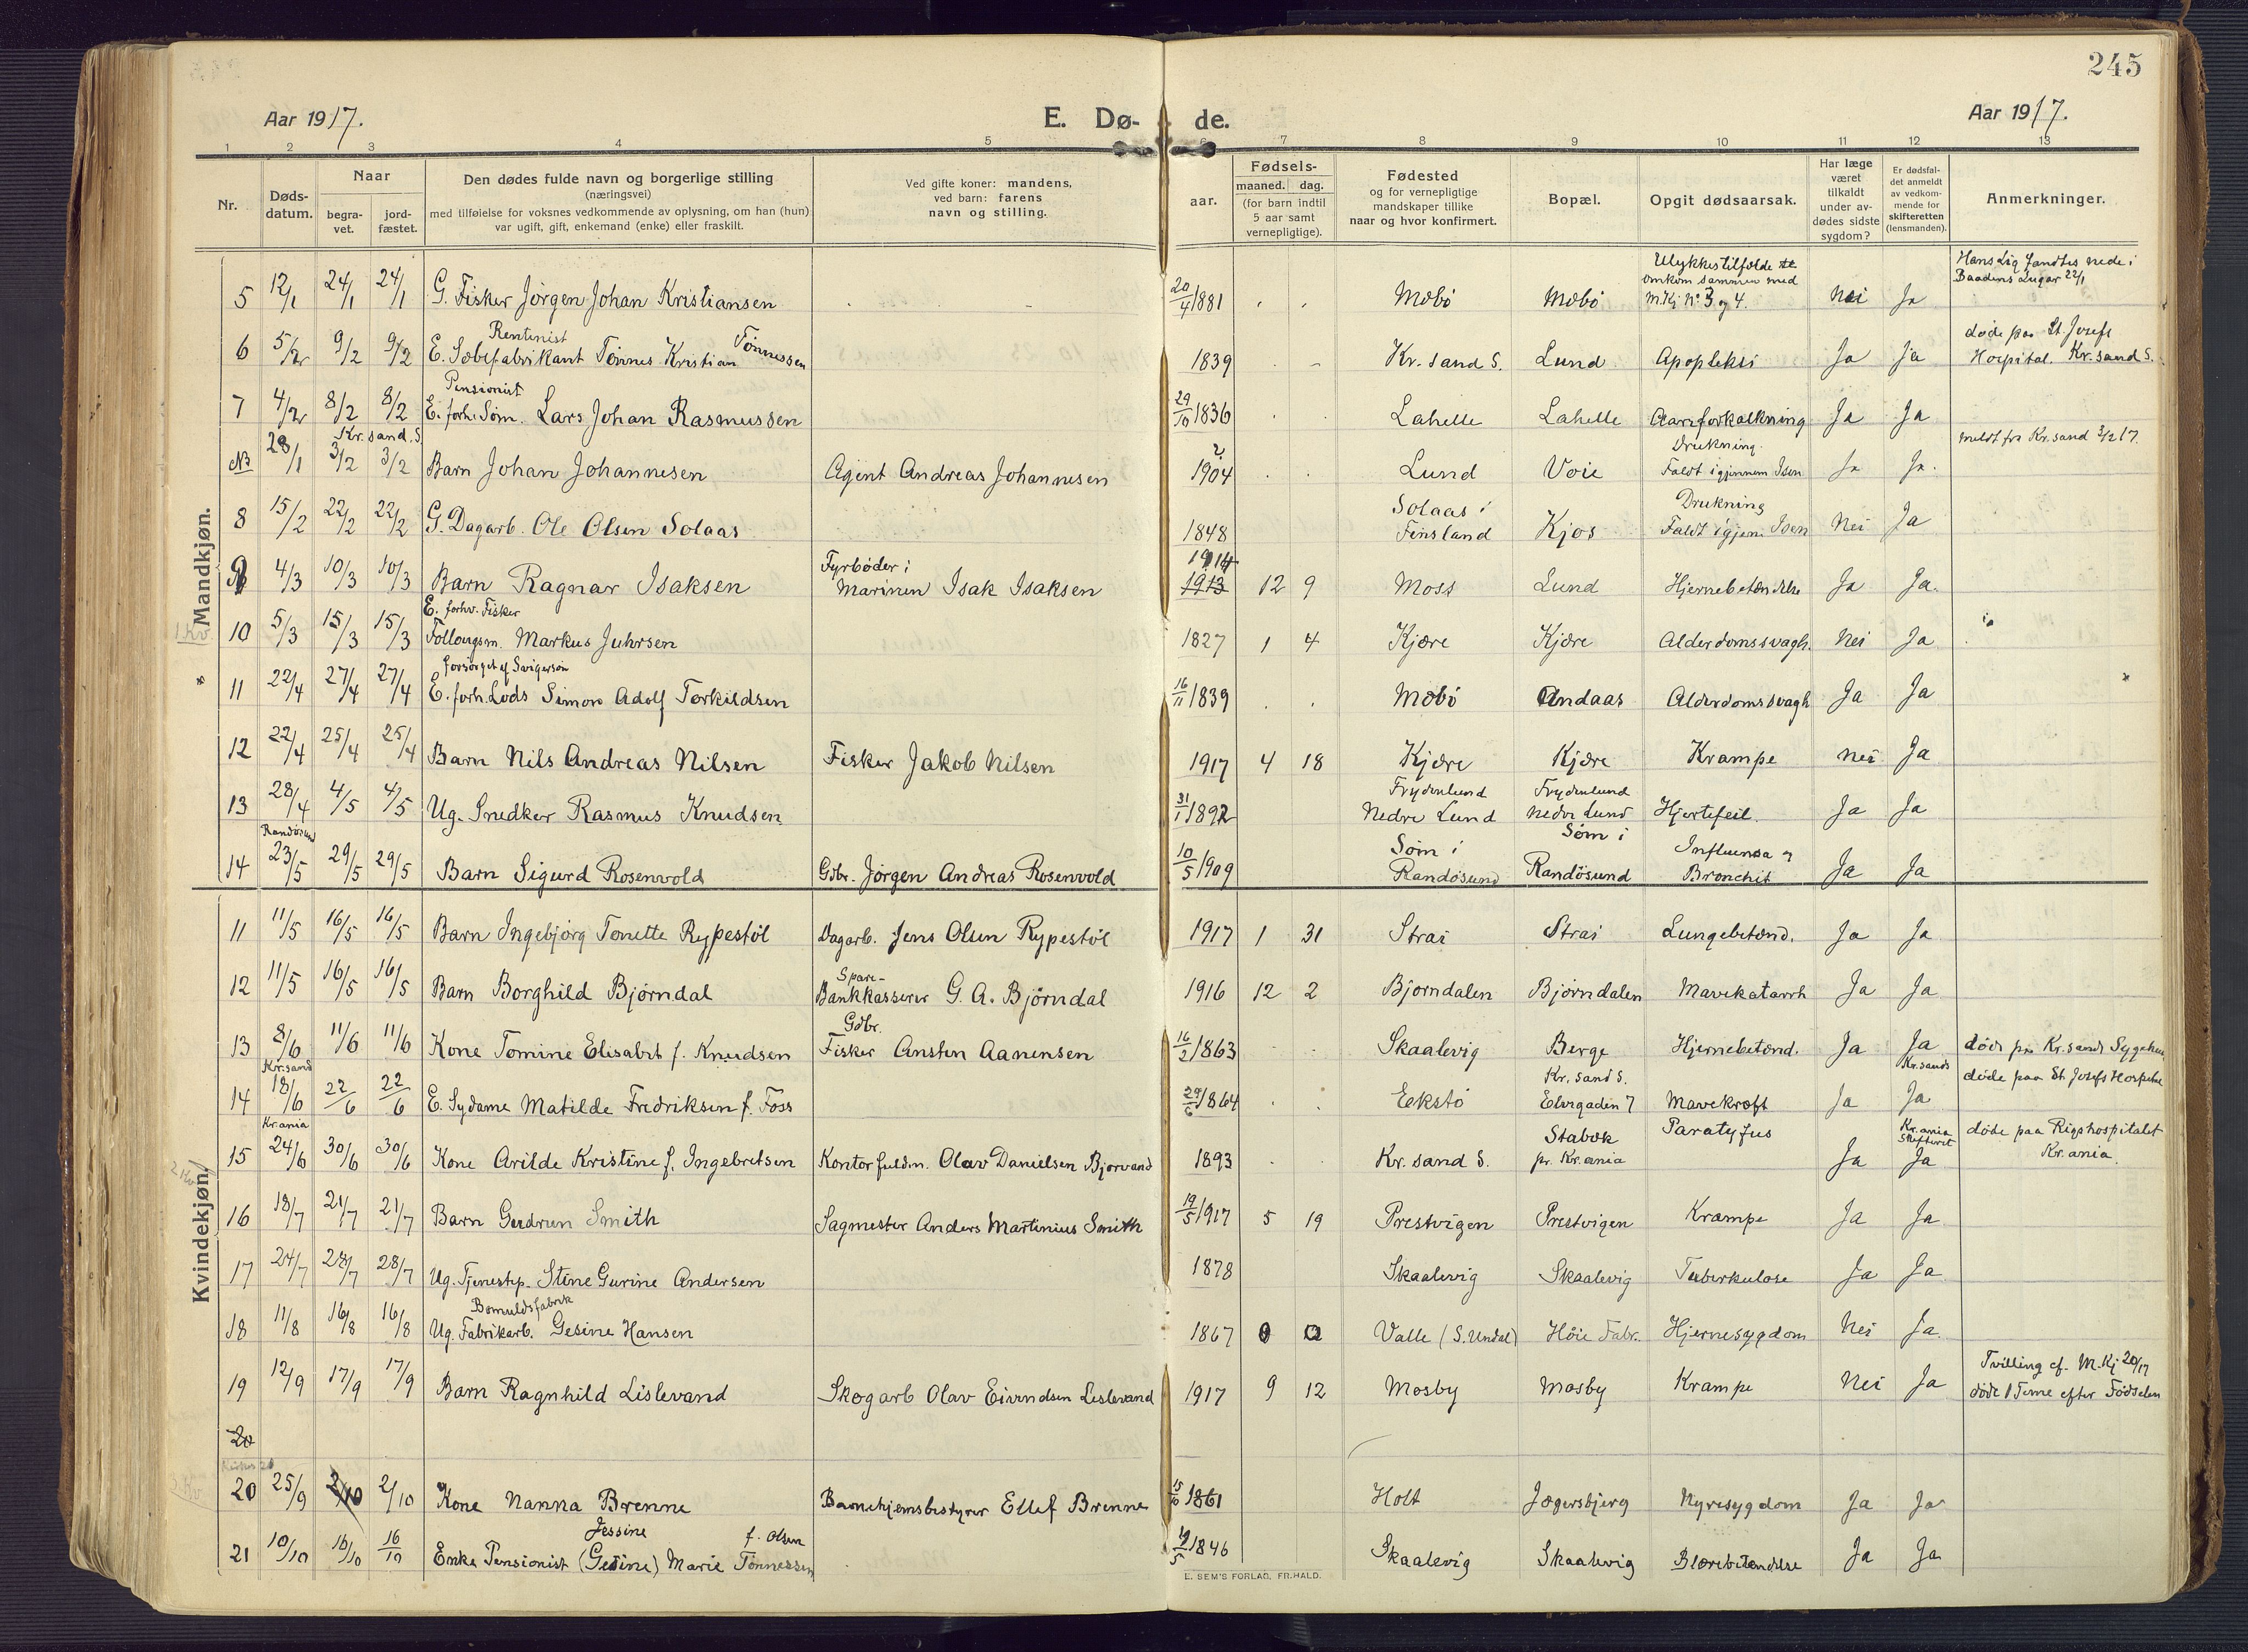 245
Aar 1917. E. Dø- de. Aar 1917.
1 2 3 4 5 6 7 8 9 10 11 12 13
Nr. Døds-datum. Naar begra-vet. jord-fæstet. Den dødes fulde navn og borgerlige stilling (næringsvei) med tilføielse for voksnes vedkommende av oplysning, om han (hun) var ugift, gift, enkemand (enke) eller fraskilt. Ved gifte koner: mandens, ved barn: farens navn og stilling. Fødsels- aar. maaned. dag. (for barn indtil 5 aar samt vernepligtige). Fødested og for vernepligtige mandskaper tillike naar og hvor konfirmert. Bopæl. Opgit dødsaarsak. Har læge været tilkaldt under av-dødes sidste sygdom? Er dødsfal-det anmeldt av vedkom-mende for skifteretten (lensmanden). Anmerkninger.
Mandkjøn.
5 12/1 24/1 24/1 G. Fisker Jörgen Johan Kristiansen 20/4 1881 Mæbö Mæbö Ulykkestilfælde omkom sammen med M.Kj No 3 og 4. Nei Ja Hans Lig fandtes nede i Baadens Lugar 22/1
6 5/2 9/2 9/2 Rentenist E. Sæbefabrikant Tönnes Kristian Tönnessen 1839 Kr.sand S. Lund Apopleksi Ja Ja døde paa St. Josefs Hospital. Kr.sand S.
7 4/2 8/2 8/2 Pensionist E. forh. Søm. Lars Johan Rasmussen 29/10 1836 Lahelle Lahelle Aareforkalkning Ja Ja
NB 28/1 Kr.sand.S 3/2 3/2 Barn Johan Johannesen Agent Andreas Johannesen 1904 ? Lund Voie Drukning. Faldt igjennem Isen Ja Ja. meldt fra Kr.sand 3/2 17.
8 15/2 22/2 22/2 G. Dagarb. Ole Olsen Solaas 1848 Solaas i Finsland Kjos Drukning Faldt igjem. Isen Nei Ja
9 4/3 10/3 10/3 Barn Ragnar Isaksen Fyrbøder i Marinen Isak Isaksen 1914 1913 12 9 Moss Lund Hjernebetændelse Ja Ja.
10 5/3 15/3 15/3 E. forhv. Fisker Follaugsm. Markus Juhrsen 1827 1 4 Kjære Kjære Alderdomssvagh. Nei Ja
11 22/4 27/4 27/4 forsörget af Svigersøn E. forh. Lods Simon Adolf Torkildsen 16/11 1839 Mæbö Andaas Alderdomssvagh Ja Ja
12 22/4 25/4 25/4 Barn Nils Andreas Nilsen Fisker Jakob Nilsen 1917 4 18 Kjære Kjære Krampe Nei Ja
13 28/4 4/5 4/5 Ug. Snedker Rasmus Knudsen 31/1 1892 Frydenlund Nedre Lund Frydenlund nedre Lund Hjertefeil. Ja Ja
14 Randösund 23/5 29/5 29/5 Barn Sigurd Rosenvold Gdbr. Jørgen Andreas Rosenvold 10/5 1909 Søm i Randösund Søm i Randösund Influensa og Bronchit Ja Ja
Kvindekjøn.
11 11/5 16/5 16/5 Barn Ingebjörg Tonette Rypestöl Dagarb. Jens Olsen Rypestöl 1917 1 31 Strai Strai Lungebetænd. Ja Ja
12 11/5 16/5 16/5 Barn Borghild Björndal Spare- Bankkasserer G. A. Björndal 1916 12 2 Bjorndalen Bjorndalen Mavekatarrh Ja Ja
13 8/6 11/6 11/6 Kone Tomine Elisabet f. Knudsen Gdbr. Fisker Ansten Aanensen 16/2 1863 Skaalevig Berge Hjernebetænd. Ja Ja døde paa Kr.sands Sygehus
14 Kr.sand 18/6 22/6 22/6 E. Sydame Matilde Fredriksen f. Foss 29/6 1864 Eekstö Kr.sand S. Elvegaden 7 Mavekræft Ja Kr.sands Ja døde paa St. Josefs Hospital
15 Kr.ania 24/6 30/6 30/6 Kone Arilde Kristine f. Ingebretsen Kontorfuldm. Olav Danielsen Bjorvand 1893 Kr.sand S. Stabæk pr. Kr.ania Paratyfus Ja Kr.ania Skifteret Ja døde paa Rigshospitalet Kr.ania
16 18/7 21/7 21/7 Barn Gudrun Smith Sagmester Anders Martinius Smith 19/5 1917 5 19 Prestvigen Prestvigen Krampe Ja Ja
17 24/7 28/7 28/7 Ug. Tjenestep. Stine Gurine Andersen 1878 Skaalevig Skaalevig Tuberkulose Ja Ja
18 11/8 16/8 16/8 Bomuldsfabrik Ug. Fabrikarb. Gesine Hansen 1867 0 0 Valle (S. Undal) Höie Fabr. Hjernesygdom Nei Ja.
19 12/9 17/9 17/9 Barn Ragnhild Lislevand Skogarb Olav Eivindsen Lislevand 1917 9 12 Mosby Mosby Krampe Nei Ja Tvilling cf. M.Kj 20/17 døde 1 Time efter Fødselen
20
20 25/9 2/10 2/10 Kone Nanna Brenne Barnehjemsbestyrer Ellef Brenne 1861 Holt Jegersbjerg Nyresygdom Ja Ja
21 10/10 16/10 16/10 Enke Pensionist Jessine (Gesine) Marie Tönnessen f. Olsen 1846 Skaalevig Skaalevig Blærebetændelse Ja Ja
E. SEM'S FORLAG, FR.HALD.